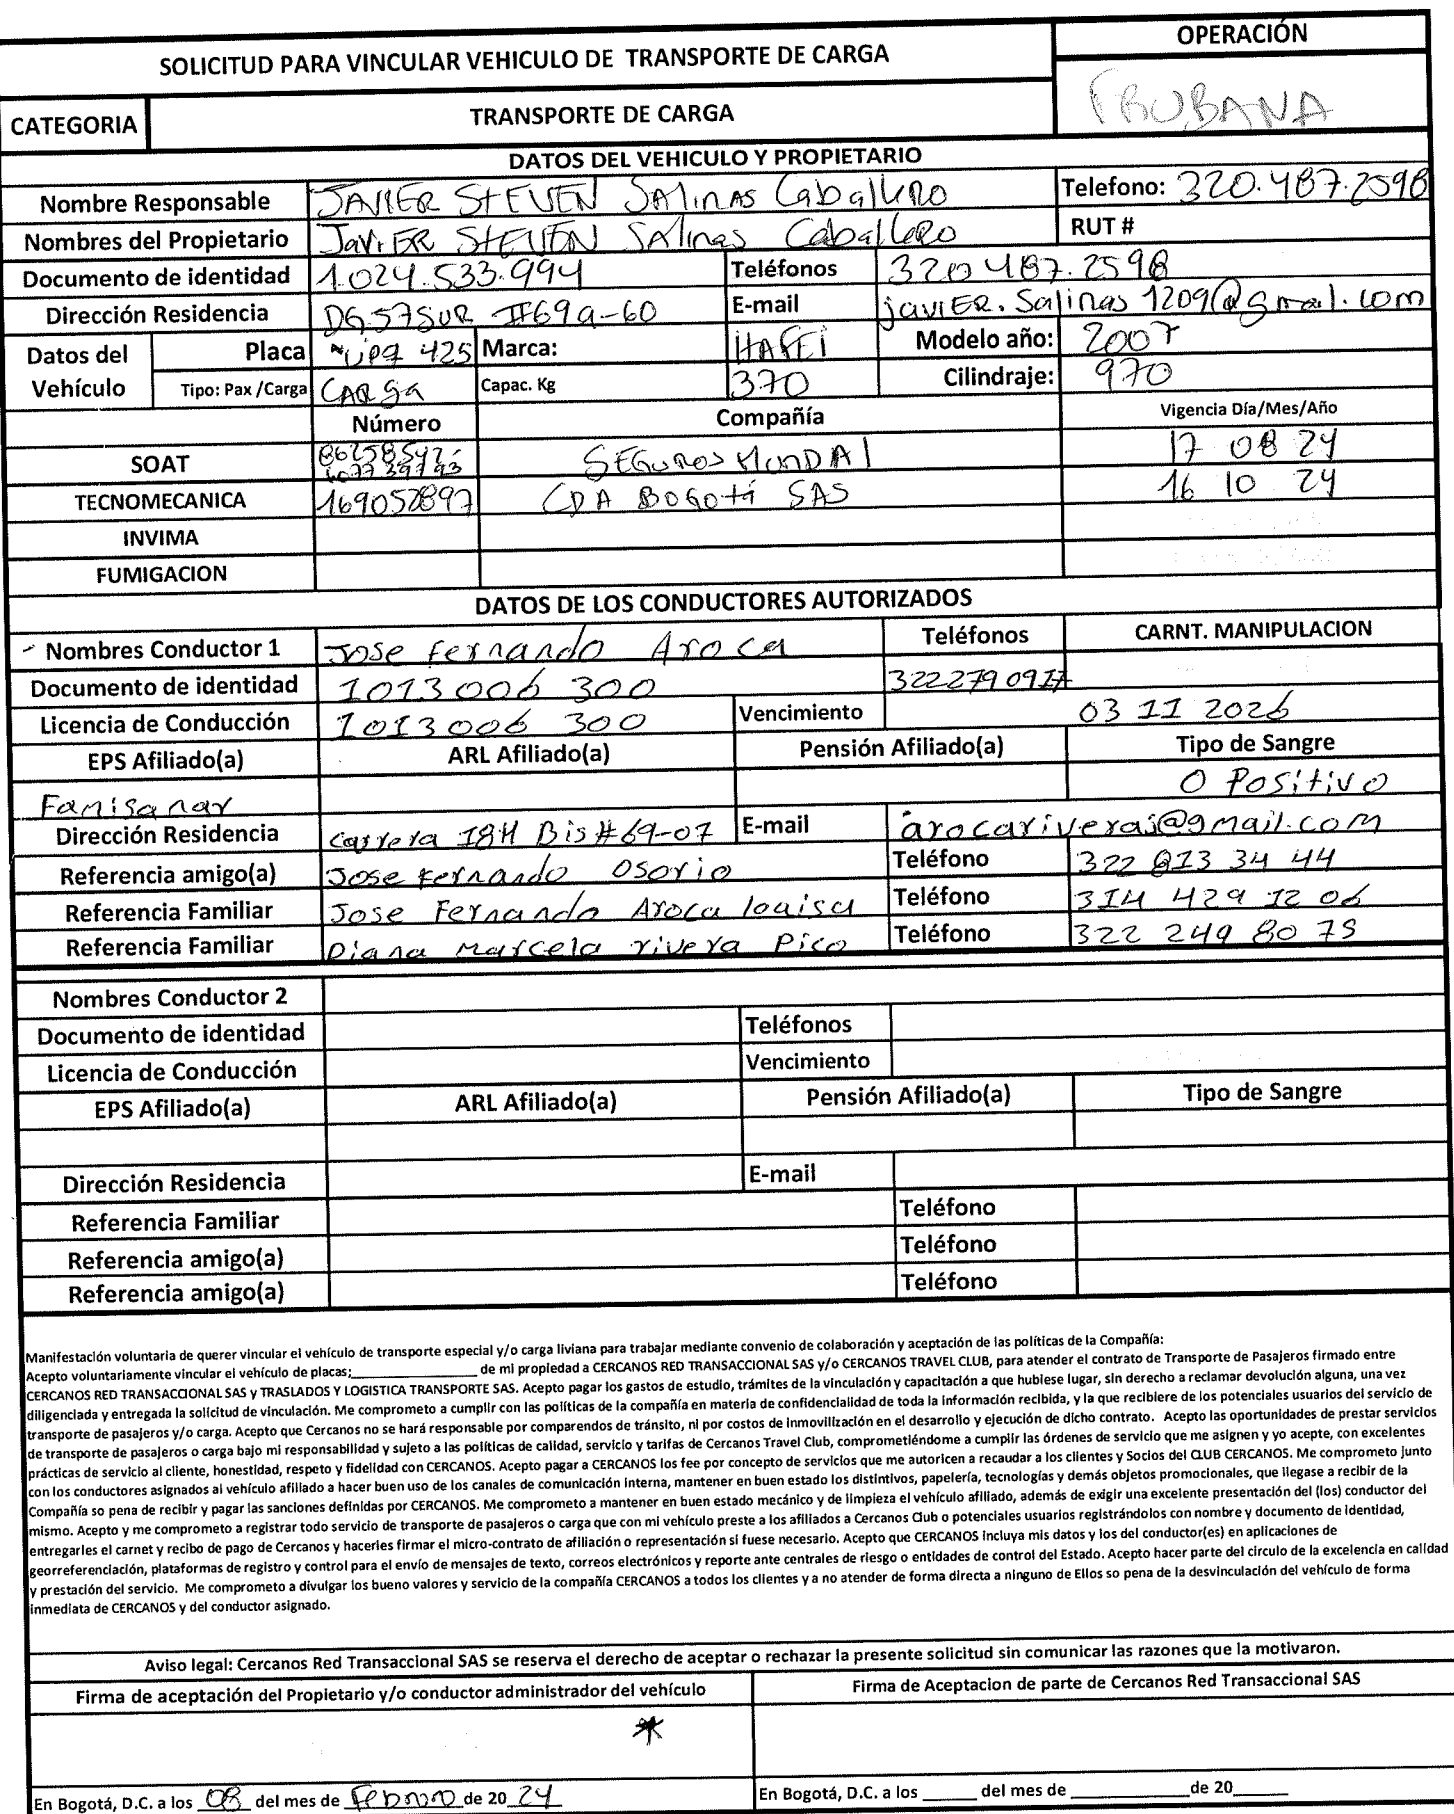 SOLICITUD PARA VINCULAR VEHICULO DE TRANSPORTE DE CARGA
OPERACIÓN
FRUBANA
CATEGORIA
TRANSPORTE DE CARGA
DATOS DEL VEHICULO Y PROPIETARIO
Nombre Responsable JAVIER STEVEN SALINAS Caballero Telefono: 320.487.2598
Nombres del Propietario JaviER STEVEN SAlinas Caballero RUT #
Documento de identidad 1.024.533.994 Teléfonos 320 487.2598
Dirección Residencia DG57SUR #69a-60 E-mail javiER.Salinas1209@gmail.com
Datos del Vehículo Placa 425 Marca: HAFEI Modelo año: 2007
Tipo: Pax /Carga CARga Capac. Kg 370 Cilindraje: 970
Número Compañía Vigencia Día/Mes/Año
SOAT SEGUROS MUNDIAl 17 08 24
TECNOMECANICA 169052897 CDA BOGOtá SAS 16 10 24
INVIMA
FUMIGACION
DATOS DE LOS CONDUCTORES AUTORIZADOS
Nombres Conductor 1 Jose Fernando Aroca Teléfonos CARNT. MANIPULACION
Documento de identidad 1013006 300 3222790917
Licencia de Conducción 1013006 300 Vencimiento 03 11 2026
EPS Afiliado(a) ARL Afiliado(a) Pensión Afiliado(a) Tipo de Sangre
Famisanar O Positivo
Dirección Residencia Carrera 18H Bis #69-07 E-mail arocariveraj@gmail.com
Referencia amigo(a) Jose Fernando Osorio Teléfono 322 813 34 44
Referencia Familiar Jose Fernando Aroca loaisa Teléfono 314 429 12 06
Referencia Familiar Diana Marcela rivera Pico Teléfono 322 249 80 75
Nombres Conductor 2
Documento de identidad Teléfonos
Licencia de Conducción Vencimiento
EPS Afiliado(a) ARL Afiliado(a) Pensión Afiliado(a) Tipo de Sangre
Dirección Residencia E-mail
Referencia Familiar Teléfono
Referencia amigo(a) Teléfono
Referencia amigo(a) Teléfono
Manifestación voluntaria de querer vincular el vehículo de transporte especial y/o carga liviana para trabajar mediante convenio de colaboración y aceptación de las políticas de la Compañía:
Acepto voluntariamente vincular el vehículo de placas;____________________ de mi propiedad a CERCANOS RED TRANSACCIONAL SAS y/o CERCANOS TRAVEL CLUB, para atender el contrato de Transporte de Pasajeros firmado entre
CERCANOS RED TRANSACCIONAL SAS y TRASLADOS Y LOGISTICA TRANSPORTE SAS. Acepto pagar los gastos de estudio, trámites de la vinculación y capacitación a que hubiese lugar, sin derecho a reclamar devolución alguna, una vez
diligenciada y entregada la solicitud de vinculación. Me comprometo a cumplir con las políticas de la compañía en materia de confidencialidad de toda la información recibida, y la que recibiere de los potenciales usuarios del servicio de
transporte de pasajeros y/o carga. Acepto que Cercanos no se hará responsable por comparendos de tránsito, ni por costos de inmovilización en el desarrollo y ejecución de dicho contrato. Acepto las oportunidades de prestar servicios
de transporte de pasajeros o carga bajo mi responsabilidad y sujeto a las políticas de calidad, servicio y tarifas de Cercanos Travel Club, comprometiéndome a cumplir las órdenes de servicio que me asignen y yo acepte, con excelentes
prácticas de servicio al cliente, honestidad, respeto y fidelidad con CERCANOS. Acepto pagar a CERCANOS los fee por concepto de servicios que me autoricen a recaudar a los clientes y Socios del CLUB CERCANOS. Me comprometo junto
con los conductores asignados al vehículo afiliado a hacer buen uso de los canales de comunicación interna, mantener en buen estado los distintivos, papelería, tecnologías y demás objetos promocionales, que llegase a recibir de la
Compañía so pena de recibir y pagar las sanciones definidas por CERCANOS. Me comprometo a mantener en buen estado mecánico y de limpieza el vehículo afiliado, además de exigir una excelente presentación del (los) conductor del
mismo. Acepto y me comprometo a registrar todo servicio de transporte de pasajeros o carga que con mi vehículo preste a los afiliados a Cercanos Club o potenciales usuarios registrándolos con nombre y documento de identidad,
entregarles el carnet y recibo de pago de Cercanos y hacerles firmar el micro-contrato de afiliación o representación si fuese necesario. Acepto que CERCANOS incluya mis datos y los del conductor(es) en aplicaciones de
georreferenciación, plataformas de registro y control para el envío de mensajes de texto, correos electrónicos y reporte ante centrales de riesgo o entidades de control del Estado. Acepto hacer parte del circulo de la excelencia en calidad
y prestación del servicio. Me comprometo a divulgar los bueno valores y servicio de la compañía CERCANOS a todos los clientes y a no atender de forma directa a ninguno de Ellos so pena de la desvinculación del vehículo de forma
inmediata de CERCANOS y del conductor asignado.
Aviso legal: Cercanos Red Transaccional SAS se reserva el derecho de aceptar o rechazar la presente solicitud sin comunicar las razones que la motivaron.
Firma de aceptación del Propietario y/o conductor administrador del vehículo Firma de Aceptacion de parte de Cercanos Red Transaccional SAS
*
En Bogotá, D.C. a los 08 del mes de Febrero de 20 24 En Bogotá, D.C. a los ______ del mes de _____________ de 20______